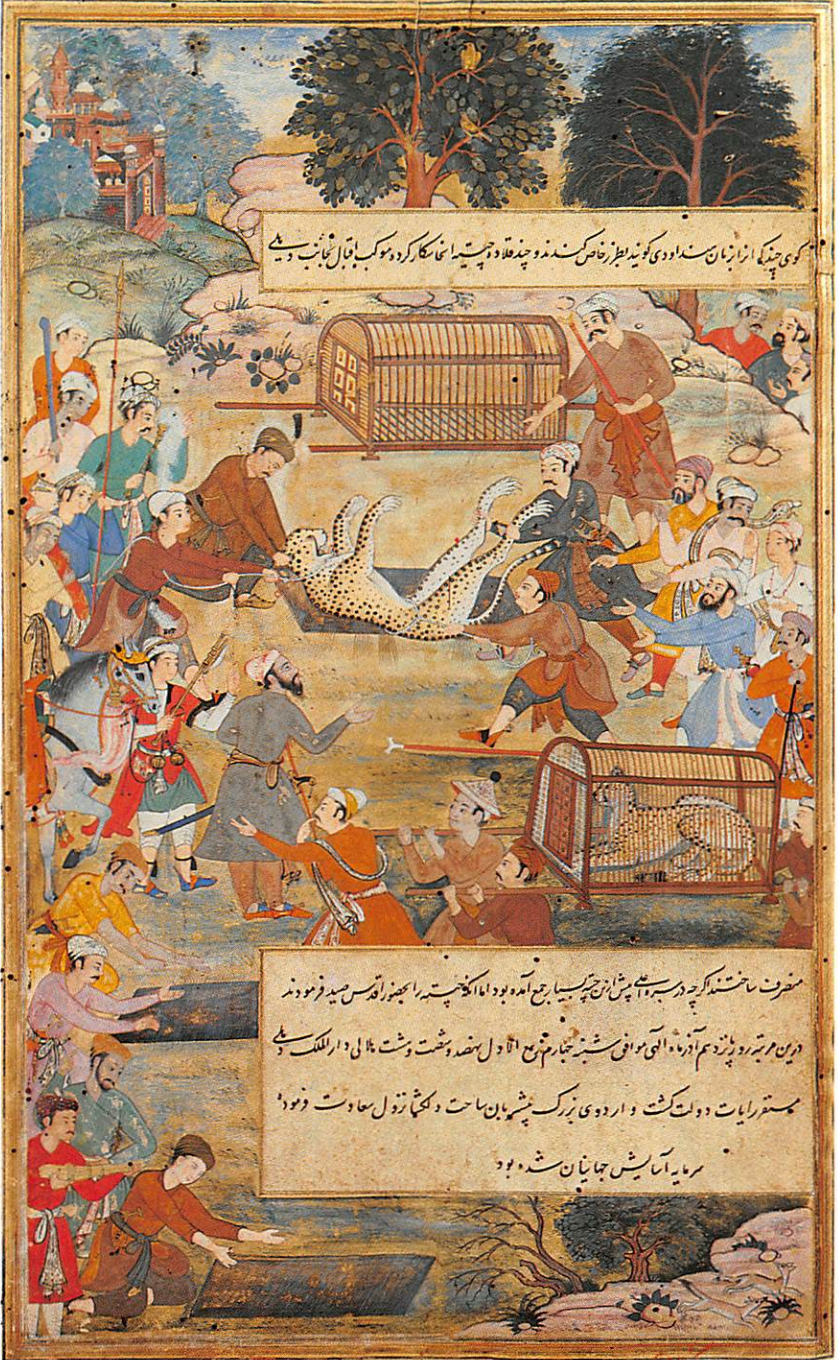 کوی چند که آنرا زبان هند اودی گویند بطرز خاص کندند و چند قلاده چیته آنجا شکار کرده موکب اقبال بجانب دهلی
منصرف ساختند اگرچه در سرکار اعلی پیش ازین چیته بسیار جمع آمده بود اما آنکه چیته را بحضور اقدس صید فرمودند
درین مرتبه روز پانزدهم آذر ماه الهی موافق شنبه چهارم ربیع الاول نهصد و شصت و هشت هلالی دار الملک دهلی
مستقر رایات دولت گشت و اردوی بزرگ پیشتر بان ساحت دلگشا نزول سعادت فرموده
سرمایه آسایش جهانیان شده بود